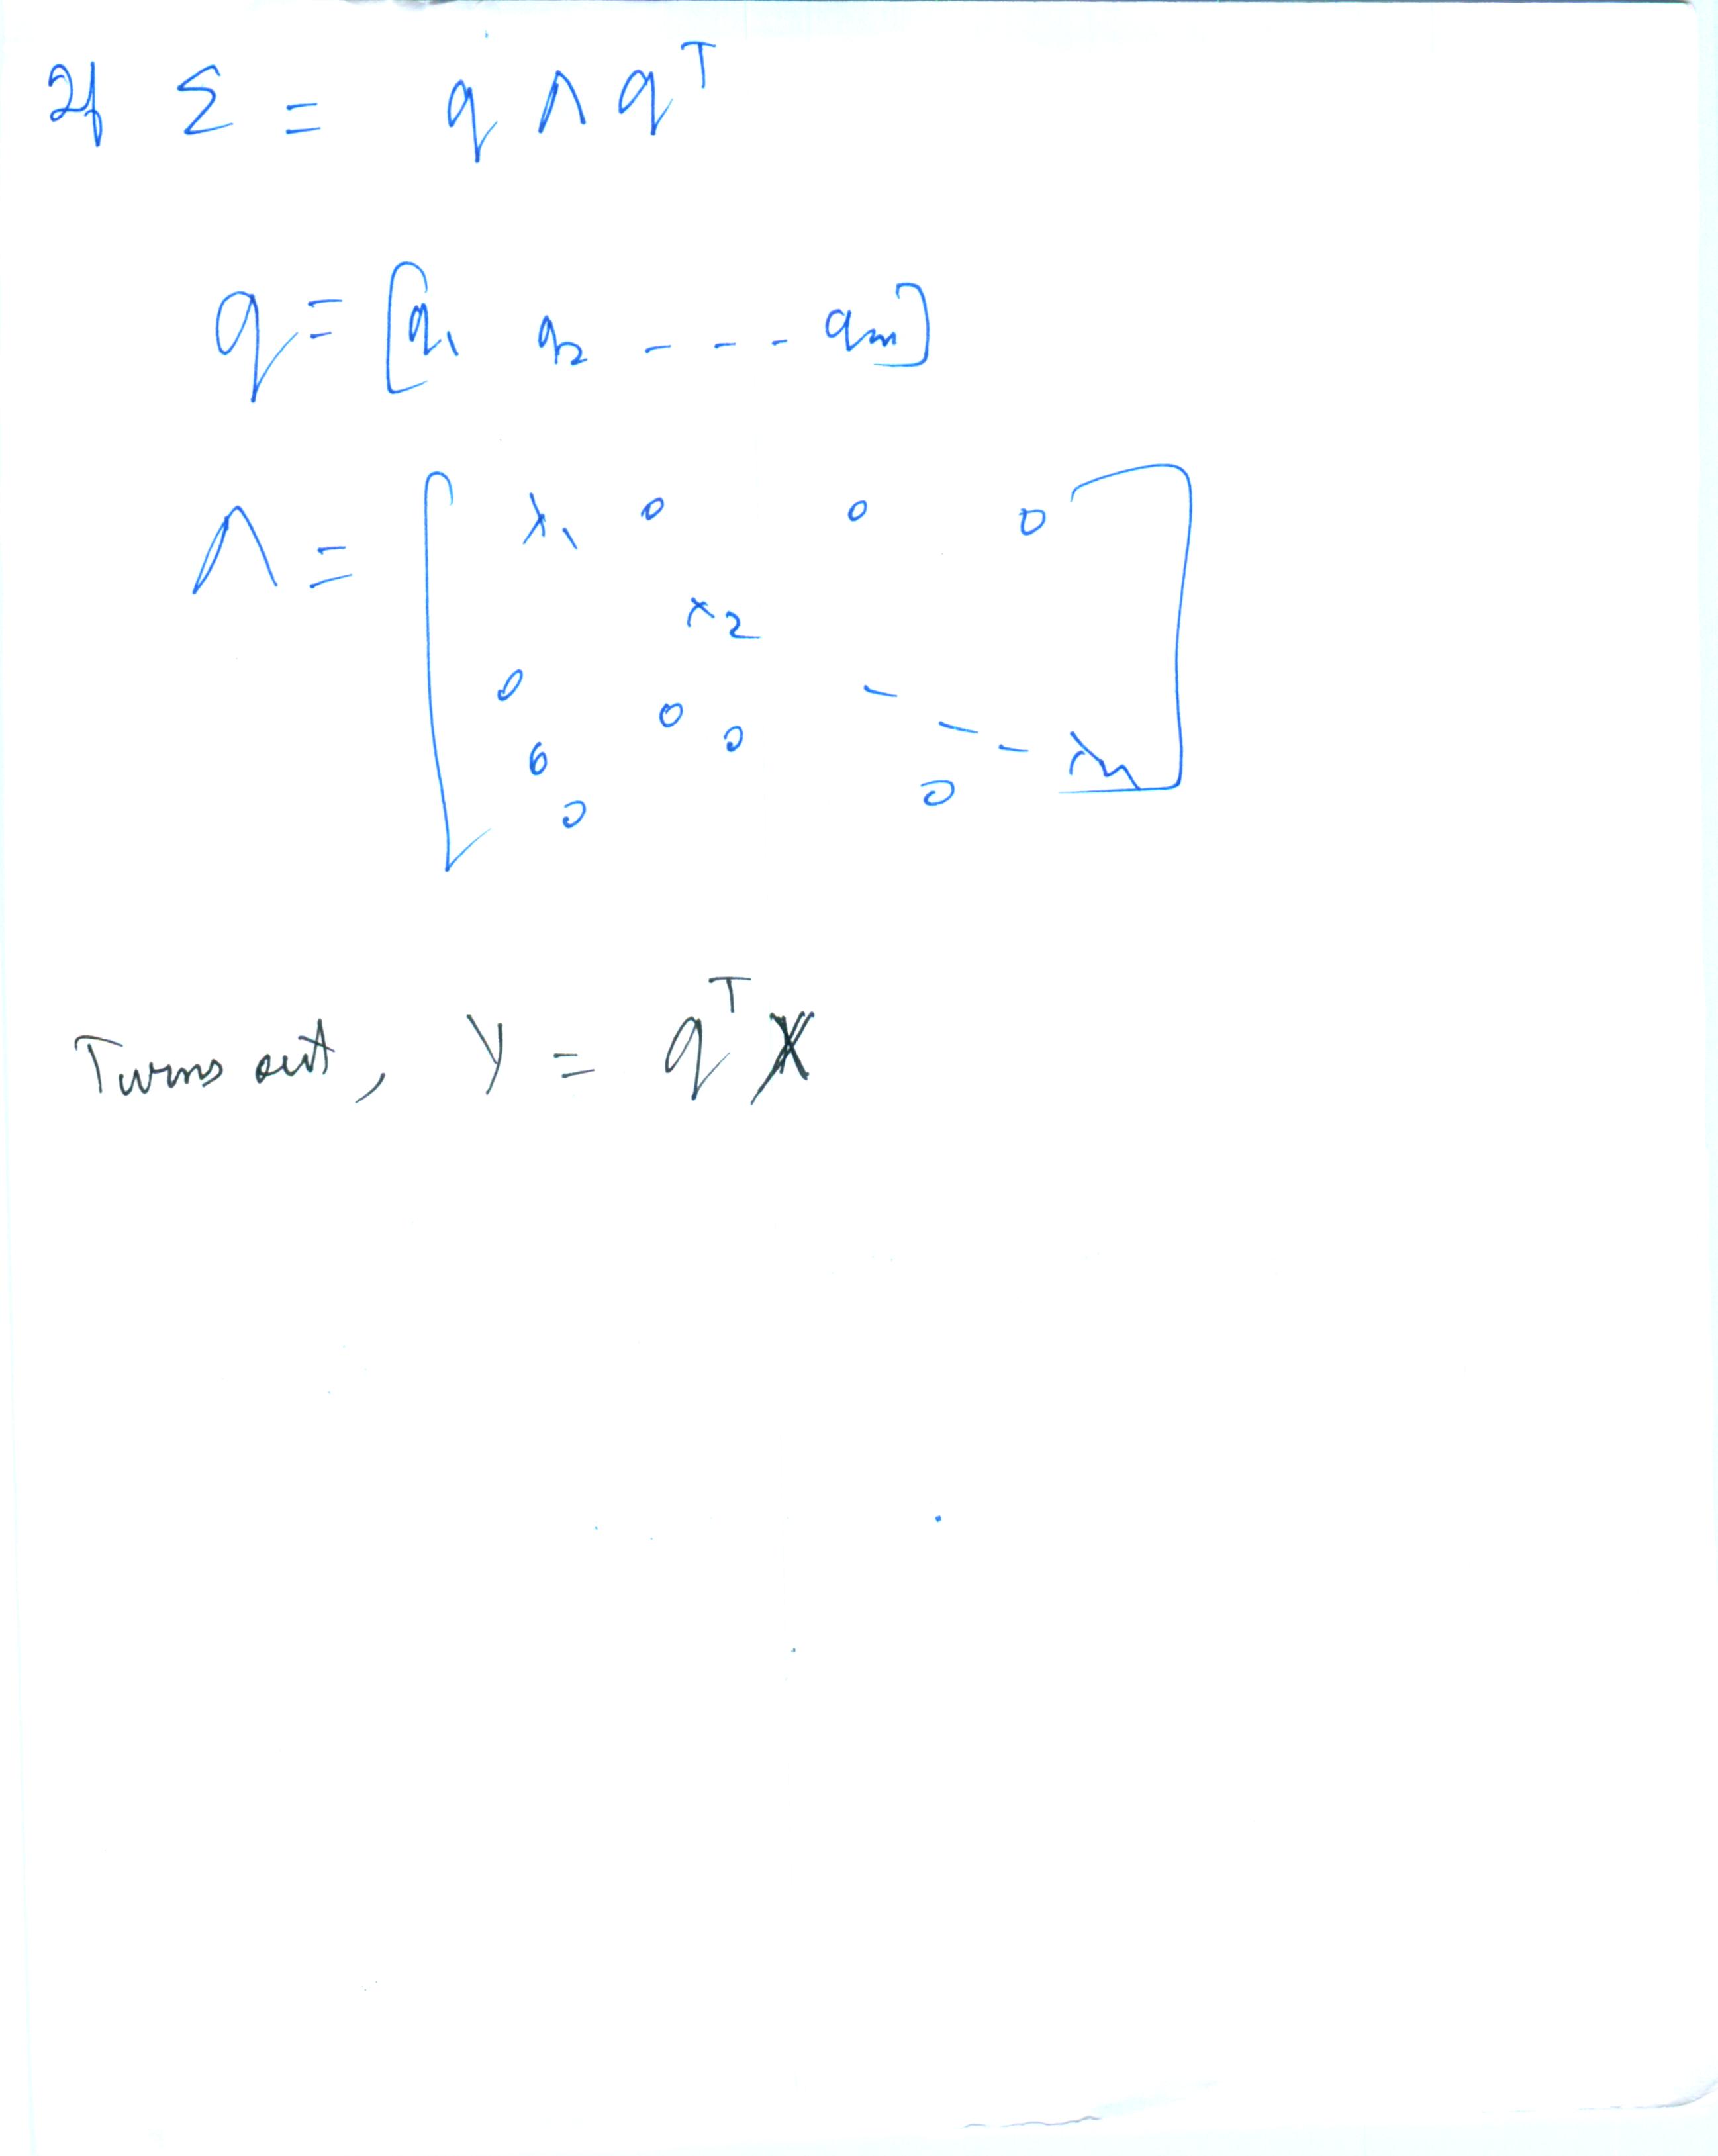 If Σ = q Λ qᵀ
q = [q₁ q₂ - - - qₘ]
Λ = [ λ₁ 0 0 0
λ₂
0 0 0 - - - λₙ
6 0
0 ]
Turns out, Y = qᵀ X